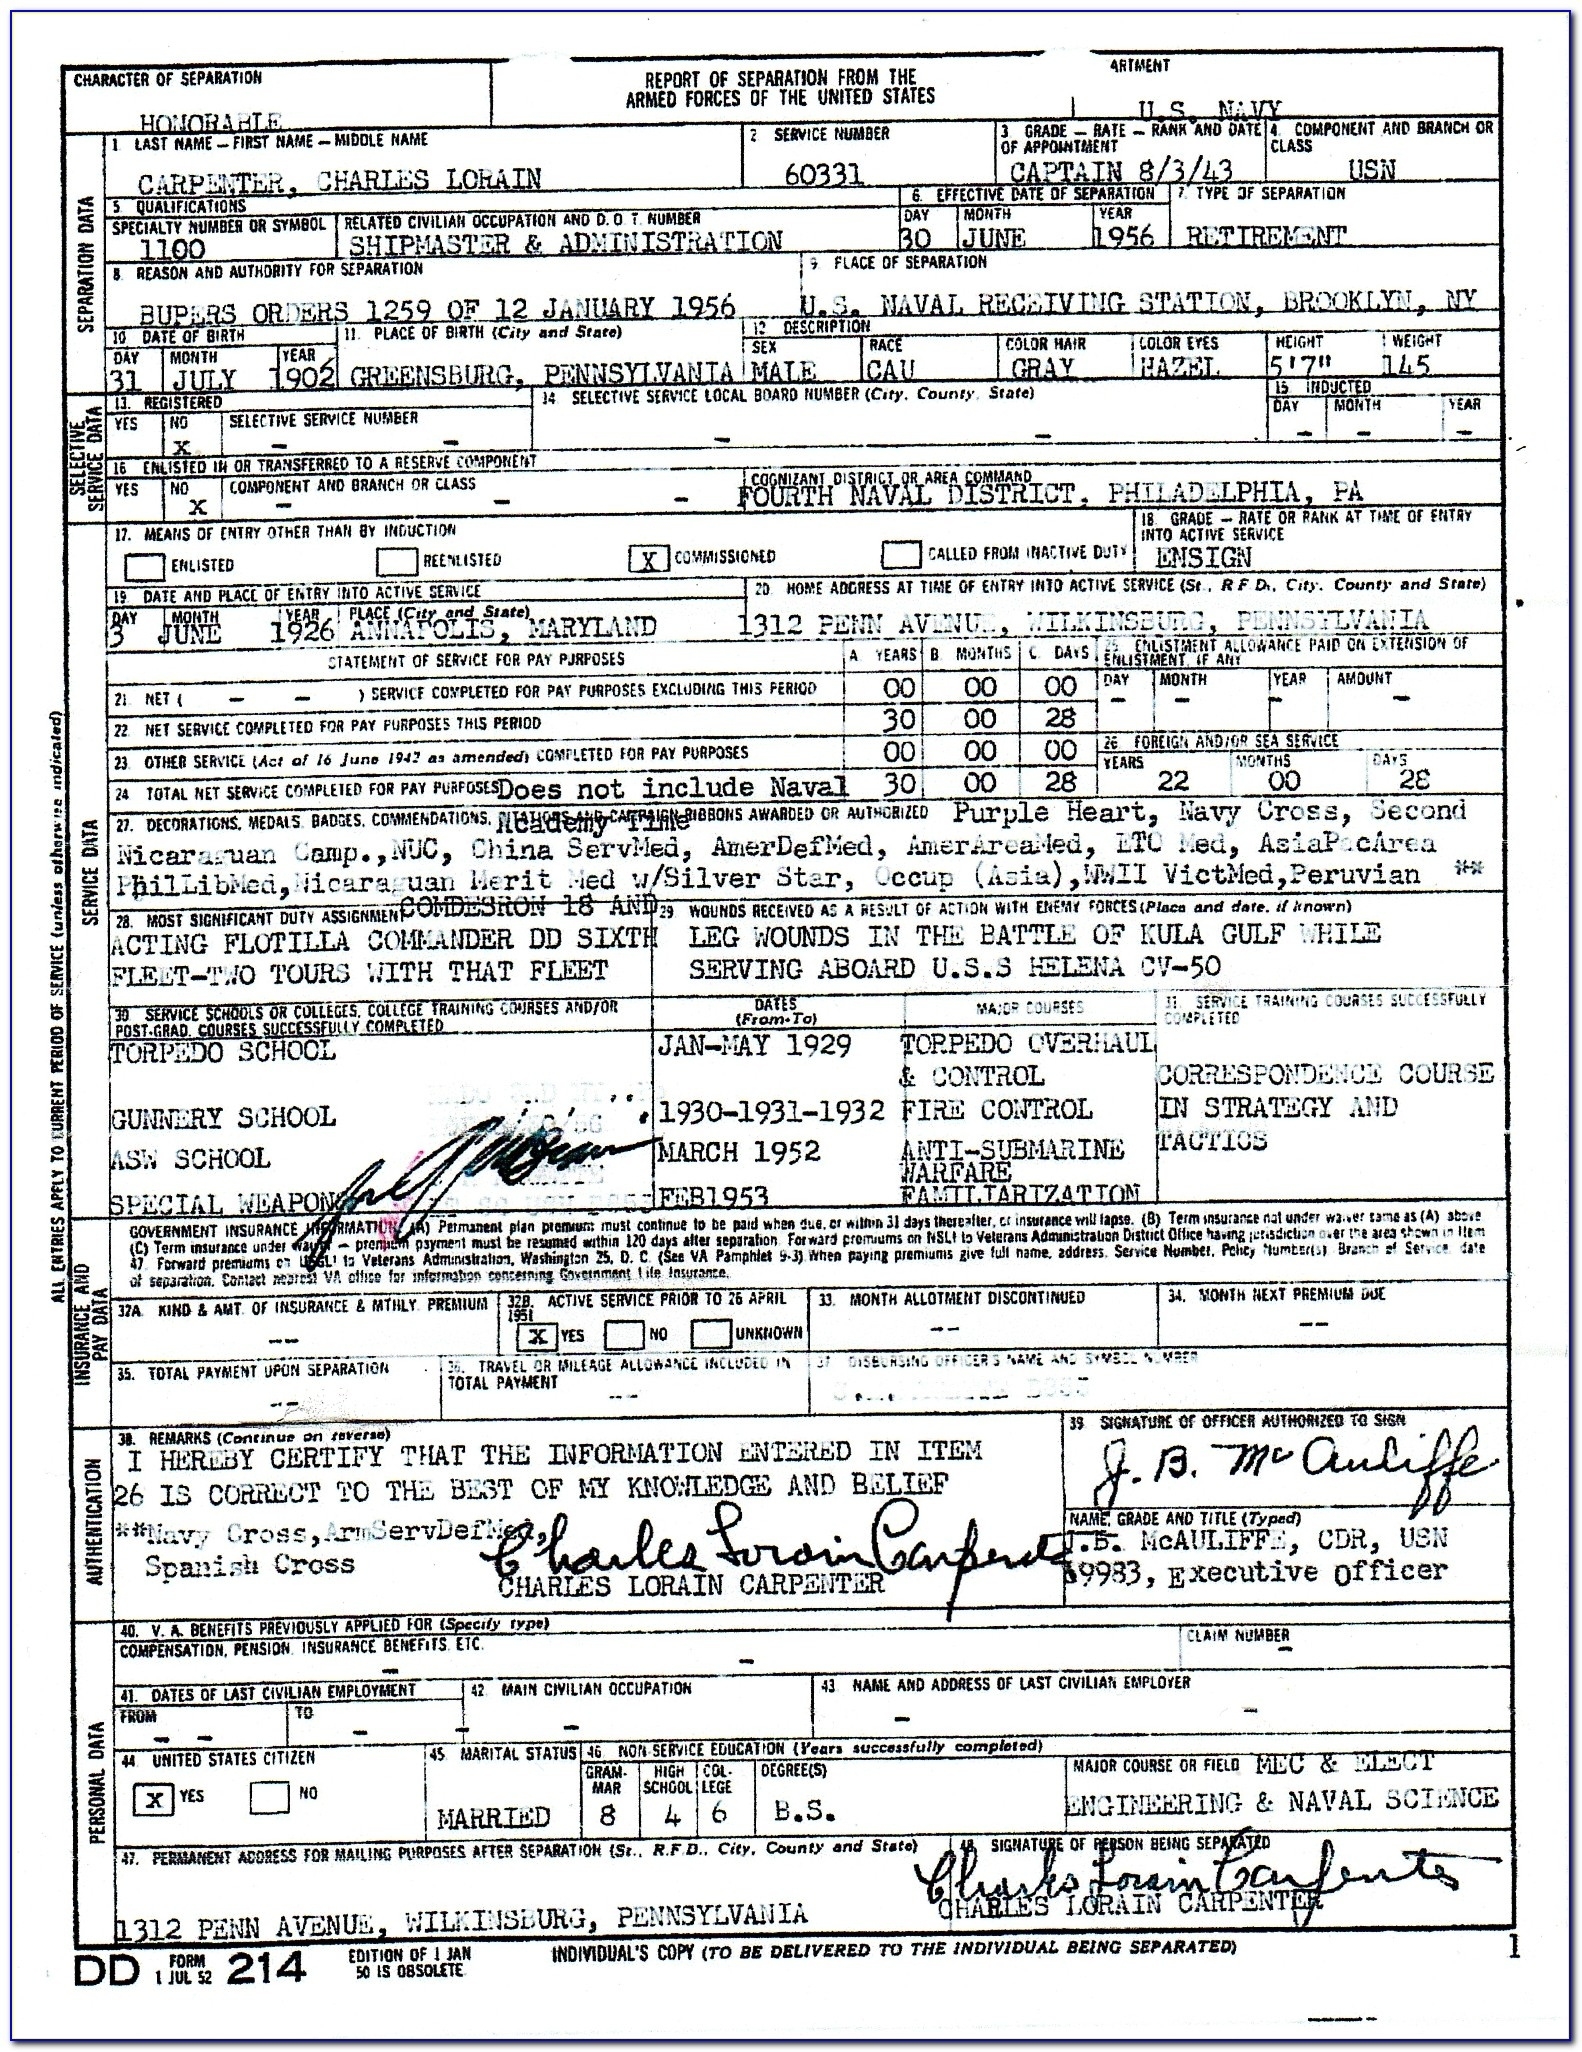 CHARACTER OF SEPARATION
HONORABLE
REPORT OF SEPARATION FROM THE
ARMED FORCES OF THE UNITED STATES
ARTMENT
U.S. NAVY
SEPARATION DATA
1 LAST NAME – FIRST NAME – MIDDLE NAME
CARPENTER, CHARLES LORAIN
2 SERVICE NUMBER
60331
3. GRADE – RATE – RANK AND DATE OF APPOINTMENT
CAPTAIN 8/3/43
4. COMPONENT AND BRANCH OR CLASS
USN
5 QUALIFICATIONS
SPECIALTY NUMBER OR SYMBOL
1100
RELATED CIVILIAN OCCUPATION AND D. O. T. NUMBER
SHIPMASTER & ADMINISTRATION
6. EFFECTIVE DATE OF SEPARATION
DAY MONTH YEAR
30 JUNE 1956
7. TYPE OF SEPARATION
RETIREMENT
8. REASON AND AUTHORITY FOR SEPARATION
BUPERS ORDERS 1259 OF 12 JANUARY 1956
9. PLACE OF SEPARATION
U.S. NAVAL RECEIVING STATION, BROOKLYN, NY
10 DATE OF BIRTH
DAY MONTH YEAR
31 JULY 1902
11. PLACE OF BIRTH (City and State)
GREENSBURG, PENNSYLVANIA
12 DESCRIPTION
SEX RACE COLOR HAIR COLOR EYES HEIGHT WEIGHT
MALE CAU GRAY HAZEL 5'7" 145
SELECTIVE SERVICE DATA
13. REGISTERED
YES NO SELECTIVE SERVICE NUMBER
X – –
14 SELECTIVE SERVICE LOCAL BOARD NUMBER (City, County, State)
– –
15. INDUCTED
DAY MONTH YEAR
– – –
16 ENLISTED IN OR TRANSFERRED TO A RESERVE COMPONENT
YES NO COMPONENT AND BRANCH OR CLASS
X – – –
COGNIZANT DISTRICT OR AREA COMMAND
FOURTH NAVAL DISTRICT, PHILADELPHIA, PA
ALL ENTRIES APPLY TO CURRENT PERIOD OF SERVICE (unless otherwise indicated)
SERVICE DATA
17. MEANS OF ENTRY OTHER THAN BY INDUCTION
ENLISTED REENLISTED X COMMISSIONED CALLED FROM INACTIVE DUTY
18. GRADE – RATE OR RANK AT TIME OF ENTRY INTO ACTIVE SERVICE
ENSIGN
19. DATE AND PLACE OF ENTRY INTO ACTIVE SERVICE
DAY MONTH YEAR PLACE (City and State)
3 JUNE 1926 ANNAPOLIS, MARYLAND
20. HOME ADDRESS AT TIME OF ENTRY INTO ACTIVE SERVICE (St., R F D., City, County and State)
1312 PENN AVENUE, WILKINSBURG, PENNSYLVANIA
STATEMENT OF SERVICE FOR PAY PURPOSES
A. YEARS B. MONTHS C. DAYS
21. NET ( – – ) SERVICE COMPLETED FOR PAY PURPOSES EXCLUDING THIS PERIOD
00 00 00
22 NET SERVICE COMPLETED FOR PAY PURPOSES THIS PERIOD
30 00 28
23 OTHER SERVICE (Act of 16 June 1942 as amended) COMPLETED FOR PAY PURPOSES
00 00 00
24 TOTAL NET SERVICE COMPLETED FOR PAY PURPOSES Does not include Naval Academy Time
30 00 28
25. ENLISTMENT ALLOWANCE PAID ON EXTENSION OF ENLISTMENT, IF ANY
DAY MONTH YEAR AMOUNT
– – – –
26 FOREIGN AND/OR SEA SERVICE
YEARS 22 MONTHS 00 DAYS 28
27. DECORATIONS, MEDALS, BADGES, COMMENDATIONS, CITATIONS AND CAMPAIGN RIBBONS AWARDED OR AUTHORIZED Purple Heart, Navy Cross, Second
Nicaraguan Camp., NUC, China ServMed, AmerDefMed, AmerAreaMed, ETO Med, AsiaPacArea
PhilLibMed, Nicaraguan Merit Med w/Silver Star, Occup (Asia), WWII VictMed, Peruvian **
28. MOST SIGNIFICANT DUTY ASSIGNMENT COMDESRON 18 AND
ACTING FLOTILLA COMMANDER DD SIXTH
FLEET–TWO TOURS WITH THAT FLEET
29 WOUNDS RECEIVED AS A RESULT OF ACTION WITH ENEMY FORCES (Place and date, if known)
LEG WOUNDS IN THE BATTLE OF KULA GULF WHILE
SERVING ABOARD U.S.S HELENA CV-50
30 SERVICE SCHOOLS OR COLLEGES, COLLEGE TRAINING COURSES AND/OR POST-GRAD. COURSES SUCCESSFULLY COMPLETED
DATES (From-To)
MAJOR COURSES
31. SERVICE TRAINING COURSES SUCCESSFULLY COMPLETED
TORPEDO SCHOOL JAN-MAY 1929 TORPEDO OVERHAUL
& CONTROL CORRESPONDENCE COURSE
GUNNERY SCHOOL 1930-1931-1932 FIRE CONTROL IN STRATEGY AND
ASW SCHOOL MARCH 1952 ANTI-SUBMARINE WARFARE TACTICS
SPECIAL WEAPON FEB1953 FAMILIARIZATION
INSURANCE AND PAY DATA
GOVERNMENT INSURANCE INFORMATION (A) Permanent plan premium must continue to be paid when due, or within 31 days thereafter, or insurance will lapse. (B) Term insurance not under waiver same as (A) above
(C) Term insurance under waiver – premium payment must be resumed within 120 days after separation. Forward premiums on NSLI to Veterans Administration District Office having jurisdiction over the area shown in Item
47. Forward premiums on USGLI to Veterans Administration, Washington 25, D. C. (See VA Pamphlet 9-3) When paying premiums give full name, address, Service Number, Policy Number(s) Branch of Service, date
of separation. Contact nearest VA office for information concerning Government Life Insurance.
32A. KIND & AMT. OF INSURANCE & MTHLY. PREMIUM
--
32B. ACTIVE SERVICE PRIOR TO 26 APRIL 1951
X YES NO UNKNOWN
33. MONTH ALLOTMENT DISCONTINUED
--
34. MONTH NEXT PREMIUM DUE
--
35. TOTAL PAYMENT UPON SEPARATION
--
36. TRAVEL OR MILEAGE ALLOWANCE INCLUDED IN TOTAL PAYMENT
--
37 DISBURSING OFFICER'S NAME AND SYMBOL NUMBER
AUTHENTICATION
38. REMARKS (Continue on reverse)
I HEREBY CERTIFY THAT THE INFORMATION ENTERED IN ITEM
26 IS CORRECT TO THE BEST OF MY KNOWLEDGE AND BELIEF
**Navy Cross, ArmServDefMed,
Spanish Cross
Charles Lorain Carpenter
CHARLES LORAIN CARPENTER
39 SIGNATURE OF OFFICER AUTHORIZED TO SIGN
J. B. McAuliffe
NAME, GRADE AND TITLE (Typed)
J.B. McAULIFFE, CDR, USN
9983, Executive Officer
PERSONAL DATA
40. V. A. BENEFITS PREVIOUSLY APPLIED FOR (Specify type)
COMPENSATION, PENSION, INSURANCE BENEFITS, ETC.
– –
CLAIM NUMBER
–
41. DATES OF LAST CIVILIAN EMPLOYMENT
FROM – – TO – –
42 MAIN CIVILIAN OCCUPATION
–
43 NAME AND ADDRESS OF LAST CIVILIAN EMPLOYER
– –
44 UNITED STATES CITIZEN
X YES NO
45 MARITAL STATUS
MARRIED
46 NON-SERVICE EDUCATION (Years successfully completed)
GRAMMAR HIGH SCHOOL COLLEGE DEGREE(S)
8 4 6 B.S.
MAJOR COURSE OR FIELD MEC & ELECT
ENGINEERING & NAVAL SCIENCE
47. PERMANENT ADDRESS FOR MAILING PURPOSES AFTER SEPARATION (St., R.F.D., City, County and State)
1312 PENN AVENUE, WILKINSBURG, PENNSYLVANIA
48 SIGNATURE OF PERSON BEING SEPARATED
Charles Lorain Carpenter
CHARLES LORAIN CARPENTER
DD FORM 1 JUL 52 214
EDITION OF 1 JAN 50 IS OBSOLETE
INDIVIDUAL'S COPY (TO BE DELIVERED TO THE INDIVIDUAL BEING SEPARATED)
1